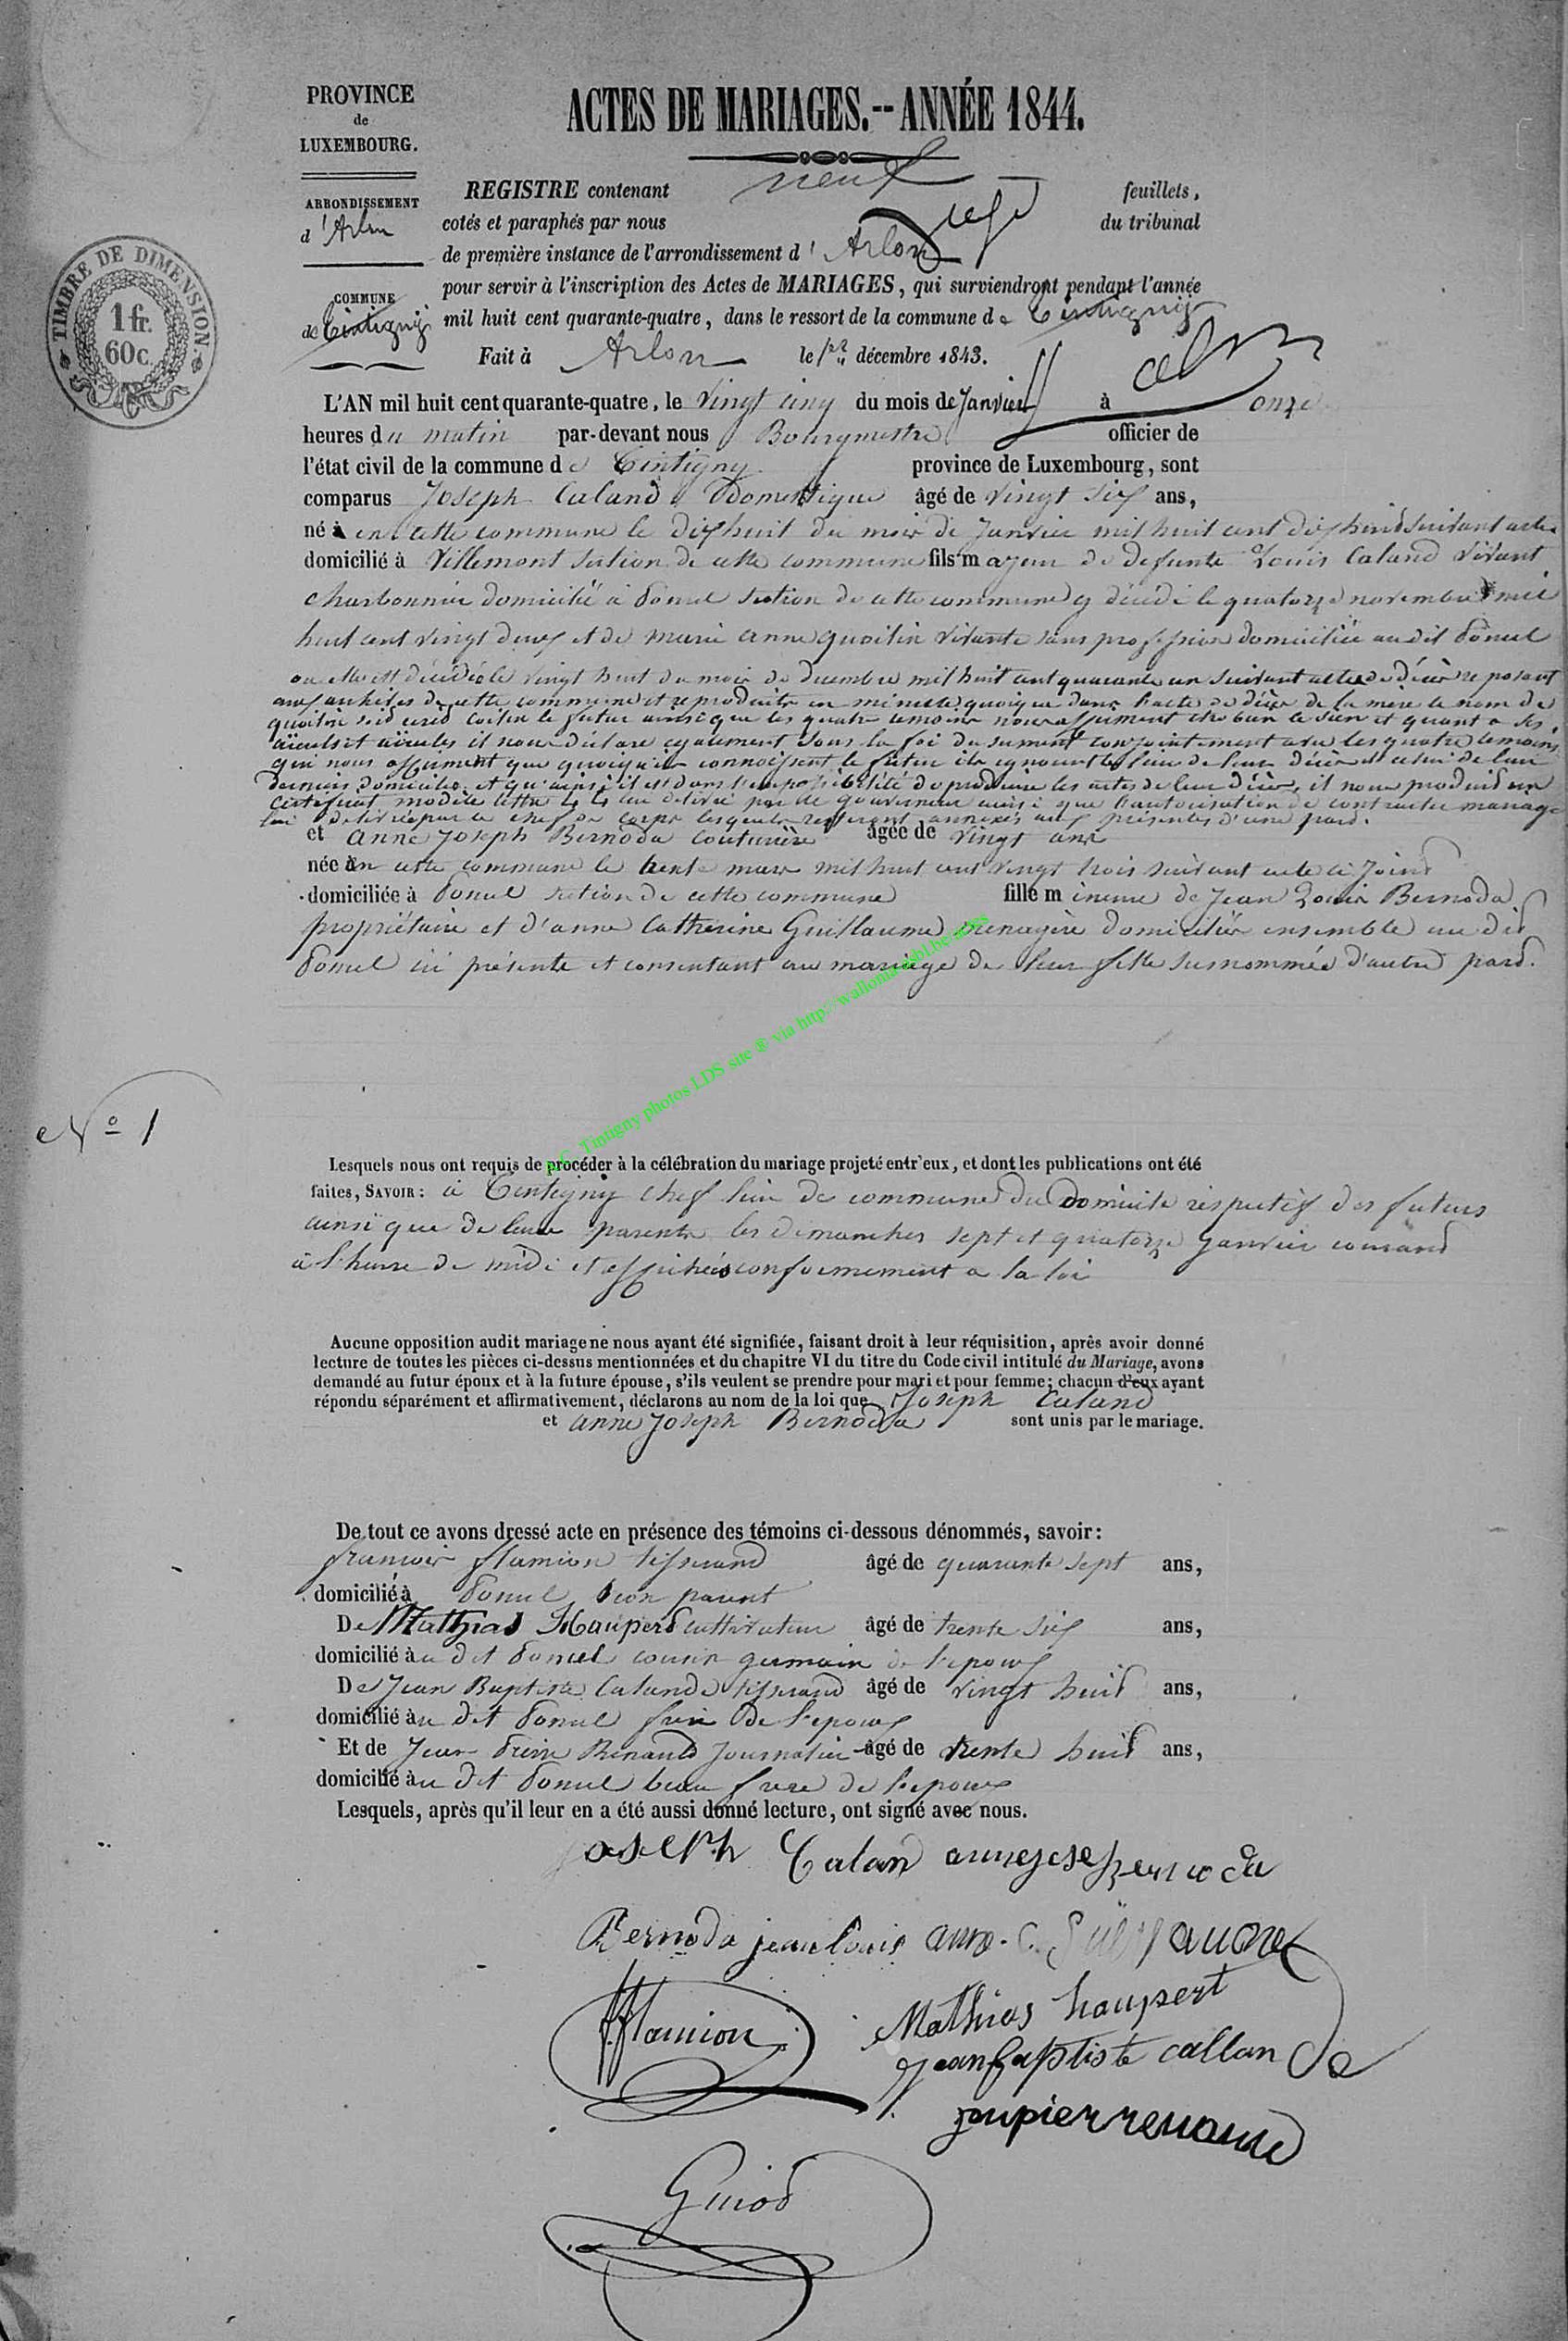 PROVINCE
de
LUXEMBOURG.
ARRONDISSEMENT
d'Arlon
COMMUNE
de Tintigny
TIMBRE DE DIMENSION
1 fr.
60 c.
ACTES DE MARIAGES.-- ANNÉE 1844.
REGISTRE contenant neuf feuillets,
cotés et paraphés par nous juge du tribunal
de première instance de l'arrondissement d'Arlon
pour servir à l'inscription des Actes de MARIAGES, qui surviendront pendant l'année
mil huit cent quarante-quatre, dans le ressort de la commune de Tintigny
Fait à Arlon le 1er décembre 1843.
L'AN mil huit cent quarante-quatre, le vingt cinq du mois de Janvier à onze
heures du matin par-devant nous Bourgmestre officier de
l'état civil de la commune de Tintigny province de Luxembourg, sont
comparus Joseph Caland Domestique âgé de vingt six ans,
né à en cette commune le dix huit du mois de Janvier mil huit cent dix huit suivant acte
domicilié à Villemont section de cette commune fils majeur de defunts Louis Caland vivant
charbonnier domicilié à Poncel section de cette commune y décédé le quatorze novembre mil
huit cent vingt deux et de marie anne quoitin vivante sans profession domiciliée au dit Poncel
ou elle est décédée le vingt huit du mois de decembre mil huit cent quarante un suivant acte de décès reposant
aux archives de cette commune et reproduits en minute quoique dans l'acte de décès de la mere le nom de
quoitin soit ecrit Coitin le futur ainsi que les quatre temoins nous affirment etre bien le sien et quant a ses
aïeuls et aïeules il nous déclare egalement sous la foi du serment conjointement avec les quatre temoins
qui nous affirment que quoiqu'ils connoissent le futur ils ignorent le lieu de leur décès et celui de leur
derniers domiciles et qu'ainsi il est dans l'impossibilité de produire les actes de leur décès, il nous produit un
certificat modèle lettre delivré par le gouverneur ainsi que l'autorisation de contracter mariage
lui delivrée par le chef de corps lesquels resteront annexés aux présentes d'une part.
et Anne Joseph Bernoda couturière âgée de vingt ans
née à en cette commune le trente mars mil huit cent vingt trois suivant acte ci joint
domiciliée à Poncel section de cette commune fille mineure de Jean Louis Bernoda
propriétaire et d'anne Catherine Guillaume menagère domiciliés ensemble au dit
Poncel ici présents et consentant au mariage de leur fille susnommée d'autre part.
A.C. Tintigny photos LDS site ® via http://wallonia-asbl.be/actes
No 1
Lesquels nous ont requis de procéder à la célébration du mariage projeté entr'eux, et dont les publications ont été
faites, SAVOIR: à Tintigny chef lieu de commune du Domicile respectif des futurs
ainsi que de leurs parents les dimanches sept et quatorze Janvier courant
à l'heure de midi et affichées conformement a la loi
Aucune opposition audit mariage ne nous ayant été signifiée, faisant droit à leur réquisition, après avoir donné
lecture de toutes les pièces ci-dessus mentionnées et du chapitre VI du titre du Code civil intitulé du Mariage, avons
demandé au futur époux et à la future épouse, s'ils veulent se prendre pour mari et pour femme; chacun d'eux ayant
répondu séparément et affirmativement, déclarons au nom de la loi que Joseph Caland
et anne Joseph Bernoda sont unis par le mariage.
De tout ce avons dressé acte en présence des témoins ci-dessous dénommés, savoir:
francois flamion tisserand âgé de quarante sept ans,
domicilié à Poncel non parent
De Mathias Haupert cultivateur âgé de trente six ans,
domicilié au dit Poncel cousin germain de l'epoux
De Jean Baptiste Calande tisserand âgé de vingt huit ans,
domicilié au dit Poncel frère de l'epoux
Et de Jean Pierre Renauld Journalier âgé de trente huit ans,
domicilié au dit Poncel beau frere de l'epoux
Lesquels, après qu'il leur en a été aussi donné lecture, ont signé avec nous.
Joseph Caland anne jose bernoda
Bernoda jean louis anne. C. Guillaume
FFlamion Mathias haupert
Jean baptiste callande
janpierrenaud
Guiod